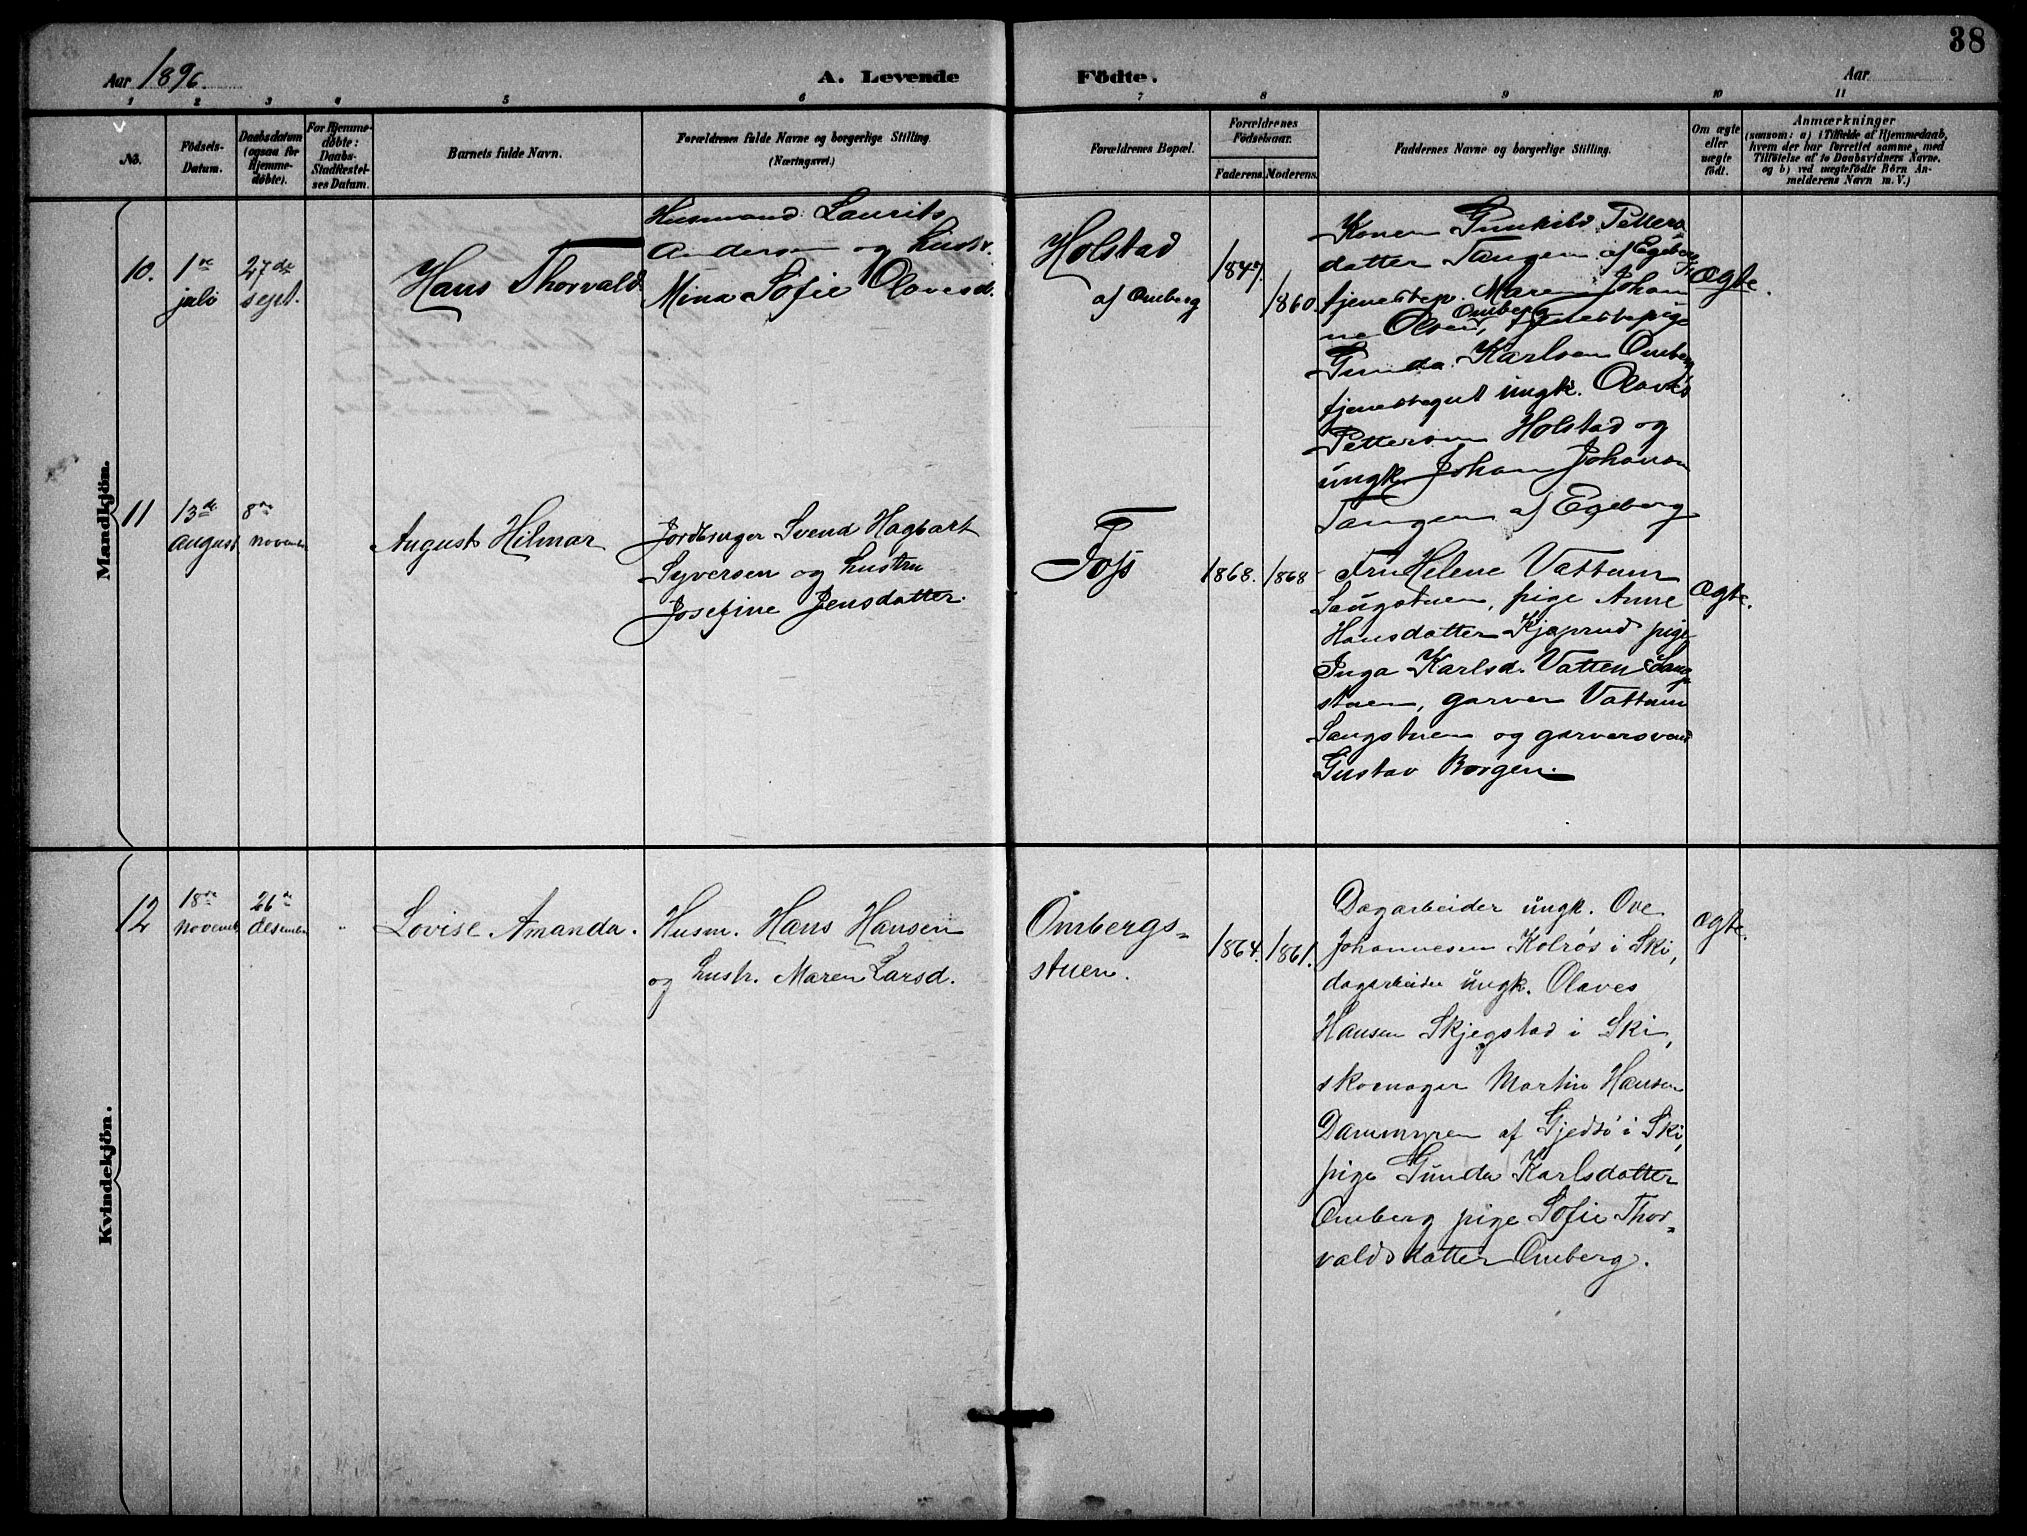 38
Aar 1896.
A. Levende
Födte.
Aar
1 2 3 4 5 6 7 8 9 10 11
No.
Födsels-
Datum.
Daabsdatum
(ogsaa for
Hjemme-
döbte).
For Hjemme-
döbte:
Daabs-
Stadfæstel-
ses Datum.
Barnets fulde Navn.
Forældrenes fulde Navne og borgerlige Stilling.
(Næringsvei.)
Forældrenes Bopæl.
Forældrenes
Födselsaar.
Faderens. Moderens.
Faddernes Navne og borgerlige Stilling.
Om ægte
eller
uægte
födt.
Anmærkninger
(saasom: a) i Tilfælde af Hjemmedaab,
hvem der har forrettet samme, med
Tilföielse af to Daabsvidners Navne.
og b) ved uægtefödte Börn An-
melderens Navn m. V.)
Mandkjön.
10.
1ste
juli
27de
sept.
Hans Thorvald
Husmand Laurits
Anderson og hustr.
Mina Sofie Olavesd.
Holstad
af Omberg
1847.
1860.
Konen Gunhild Petters-
datter Tangen af Egeberg
tjenestep. Maren Johan
ne Olsen, Omberg tjenestepige
Gunda Karlsen Omberg
tjenestegut ungk. Olaves
Petterson Holstad og
ungk. Johan Johanson
Tangen af Egeberg
Ægte.
11
13de
august
8de
novemb.
August Hilmar
Jordbruger Svend Hagbart
Syversen og hustru
Josefine Jensdatter.
Foss
1868.
1868
Fru Helene Vattum
Saugstuen, pige Anne
Hansdatter Kjeprud pige
Inga Karlsd. Vatten Saug-
stuen, garver Vattum
Saugstuen og garversvend
Gustav Borgen.
Ægte.
Kvindekjön.
12
18de
novemb.
26de
desembr
"
Lovise Amanda.
Husm. Hans Hansen
og hustr. Maren Larsd.
Ombergs-
stuen.
1864.
1861.
Dagarbeider ungk. Ove
Johannesen Kolrös i Ski,
dagarbeider ungk. Olaves
Hansen Skjegstad i Ski,
skomager Martin Hansen
Dammyren af Gjedsö i Ski,
pige Gunda Karlsdatter
Omberg pige Sofie Thor-
valdsdatter Omberg.
ægte.